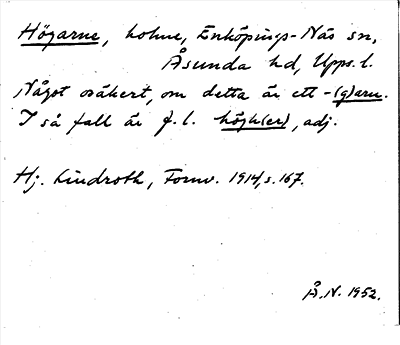 Högarne, holme, Enköpings-Näs sn,
Åsunda hd, Upps. l.
Något osäkert, om detta är ett -(g)arn.
I så fall är f.l. högh(er), adj.
Hj. Lindroth, Fornv. 1914, s. 167.
Å.N. 1952.